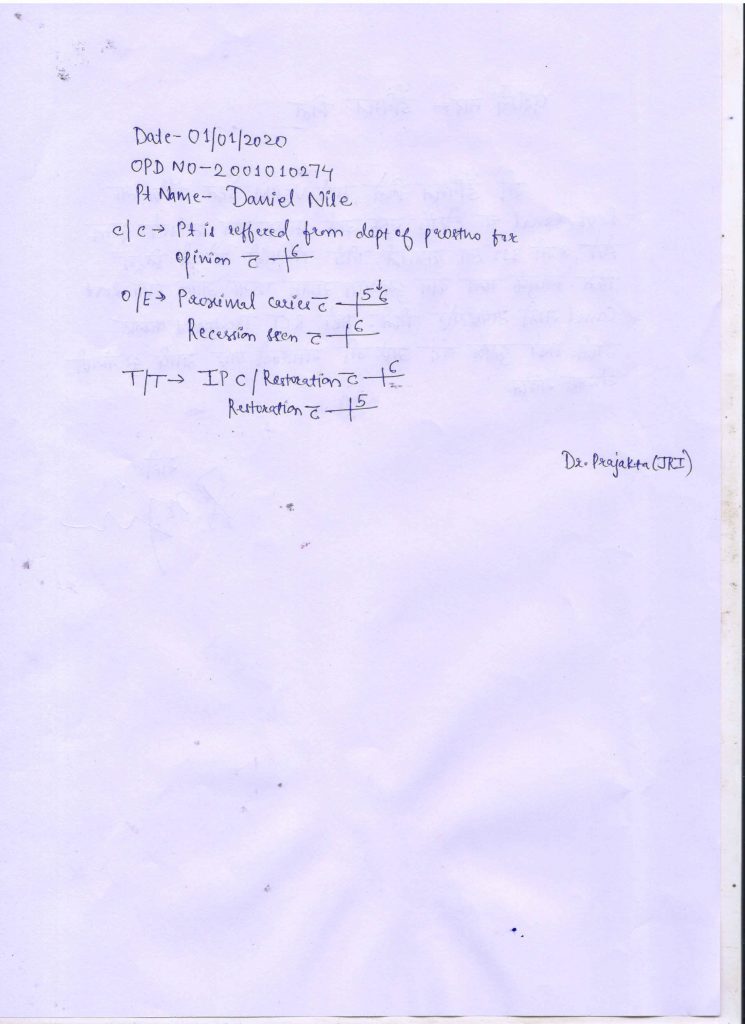 Date- 01/01/2020
OPD NO-2001010274
Pt Name- Daniel Nile
c/c → Pt is reffered from dept of prostho for
opinion c̄ 6
O/E → Proximal caries c̄ 5 6
Recession seen c̄ 6
T/T → IPC / Restoration c̄ 6
Restoration c̄ 5
Dr. Prajakta (JRI)